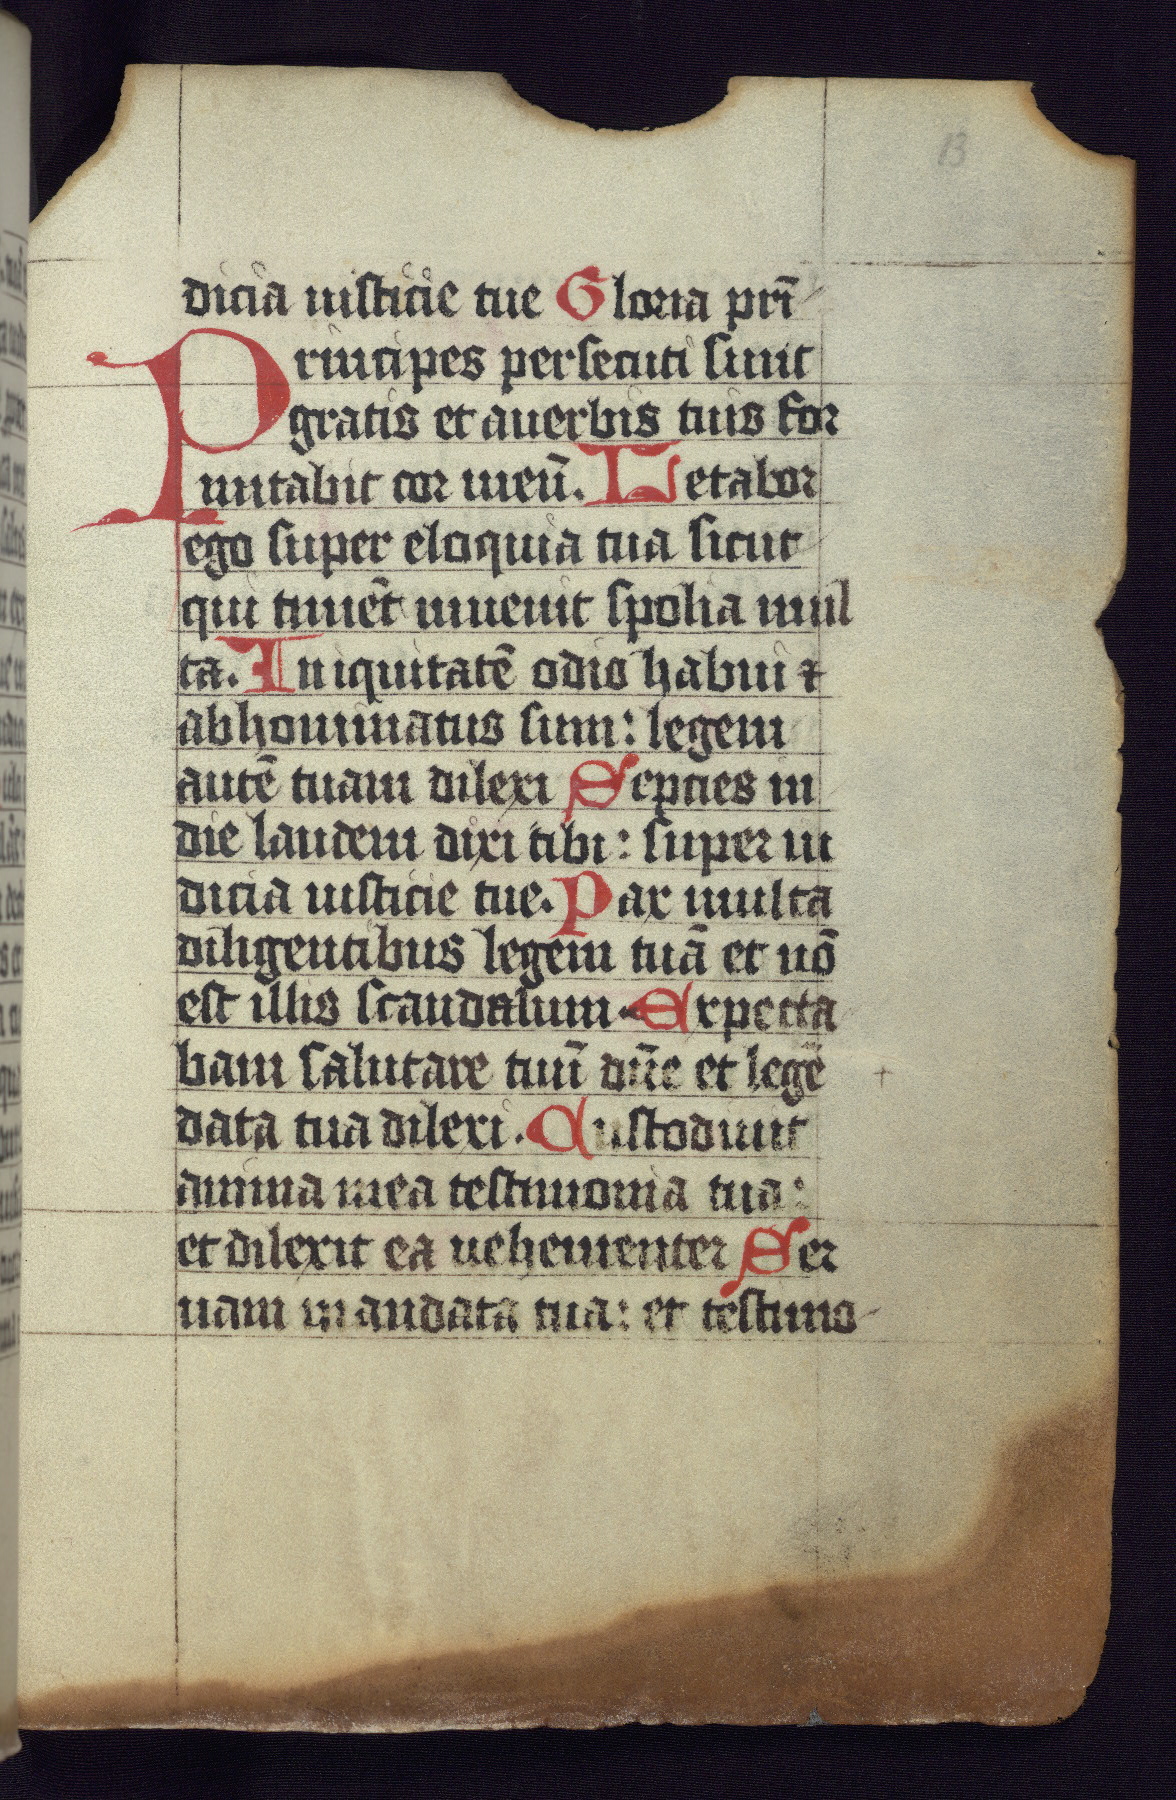 13
dicia iusticie tue Gloria pr̄i
Principes persecuti sunt
gratis et a uerbis tuis for
mitabit cor meū. Letabor
ego super eloquia tua sicut
qui inuēt inuenit spolia mul
ta. Iniquitatē odio habui ⁊
abhominatus sum: legem
autē tuam dilexi Septies in
die laudem dixi tibi: super iu
dicia iusticie tue. Pax multa
diligentibus legem tuā et nō
est illis scandalum. Expecta
bam salutare tuū dn̄e et legē
data tua dilexi. Custodiuit
anima mea testimonia tua:
et dilexit ea uehementer Ser
uam mandata tua: et testimo